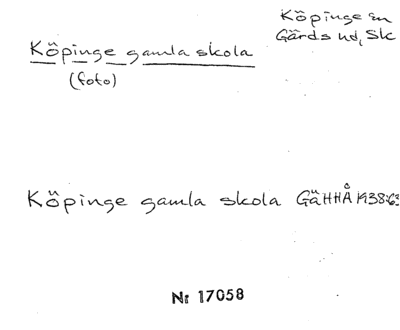 Köpinge sn
Gärds hd, Sk
Köpinge gamla skola
(foto)
Köpinge gamla skola GäHHÅ 1938:63
Nr 17058